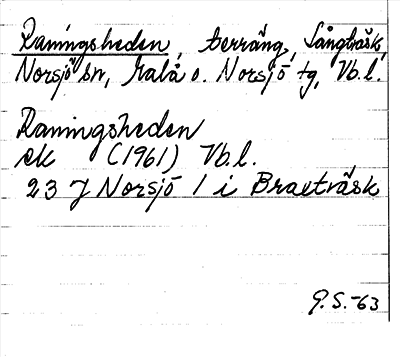 Raningsheden, terräng, Långträsk,
Norsjö sn, Malå o. Norsjö tg, Vb.l.
Raningsheden
ek (1961) Vb.l.
23 J Norsjö 1 i Braxträsk
G.S.-63